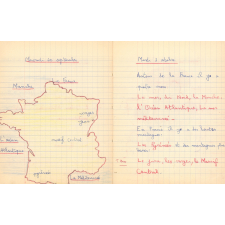 Samedi 30 septembre
La France
Manche
vosges
jura
massif central
Atlantique
pyrénées
La Méditerranée
Mardi 3 octobre
Autour de la France il y a
quatre mers
La mer du Nord, la Manche,
L'Océan Atlantique, la mer
méditerranée.
En France il y a des hautes
montagnes.
Les Pyrénées et des montagnes plus
Le jura, les vosges, le Massif
Central.